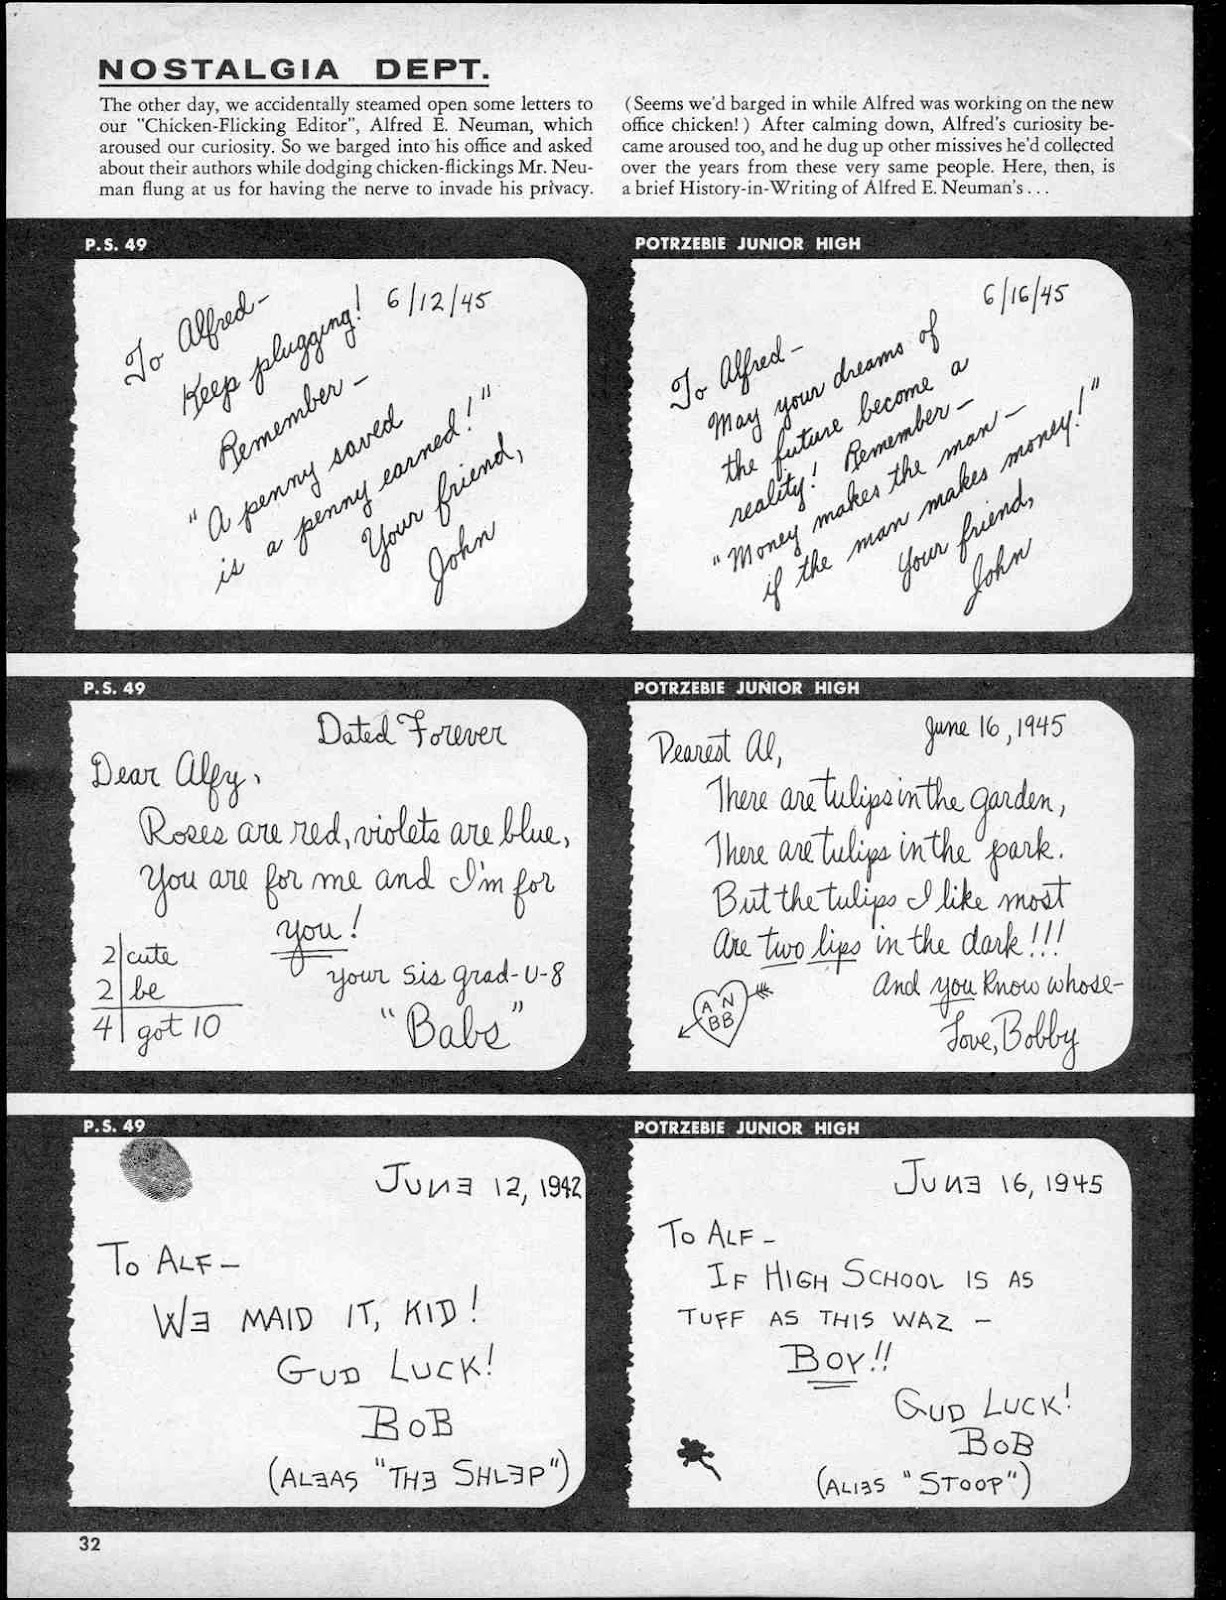 NOSTALGIA DEPT.
The other day, we accidentally steamed open some letters to
our "Chicken-Flicking Editor", Alfred E. Neuman, which
aroused our curiosity. So we barged into his office and asked
about their authors while dodging chicken-flickings Mr. Neu-
man flung at us for having the nerve to invade his privacy.
(Seems we'd barged in while Alfred was working on the new
office chicken!) After calming down, Alfred's curiosity be-
came aroused too, and he dug up other missives he'd collected
over the years from these very same people. Here, then, is
a brief History-in-Writing of Alfred E. Neuman's...
P.S. 49
6/12/45
To Alfred—
Keep plugging!
Remember—
"A penny saved
is a penny earned!"
Your friend,
John
POTRZEBIE JUNIOR HIGH
6/16/45
To Alfred—
May your dreams of
the future become a
reality! Remember—
"Money makes the man—
if the man makes money!"
Your friend,
John
P.S. 49
Dated Forever
Dear Alfy,
Roses are red, violets are blue,
You are for me and I'm for
you!
2 cute
2 be
4 got 10
your sis grad-U-8
"Babs"
POTRZEBIE JUNIOR HIGH
June 16, 1945
Dearest Al,
There are tulips in the garden,
There are tulips in the park.
But the tulips I like most
Are two lips in the dark!!!
And you know whose—
Love, Bobby
A N
BB
P.S. 49
JUNE 12, 1942
TO ALF—
WE MAID IT, KID!
GUD LUCK!
BOB
(ALEAS "THE SHLEP")
POTRZEBIE JUNIOR HIGH
JUNE 16, 1945
TO ALF—
IF HIGH SCHOOL IS AS
TUFF AS THIS WAZ —
BOY!!
GUD LUCK!
BOB
(ALIES "STOOP")
32